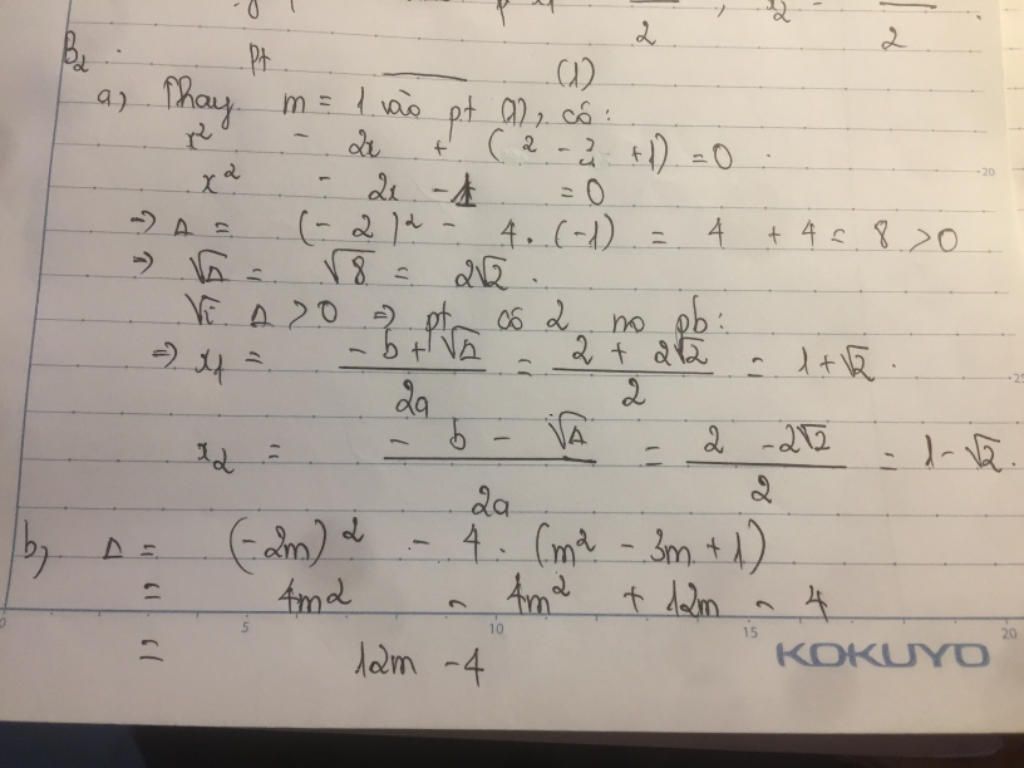 2 , x2 = 2 .
B2 . pt ——— (1)
a, Thay m = 1 vào pt (1), có:
x² - 2x + ( 2 - 3 + 1) = 0 .
x² - 2x - 1 = 0
→ Δ = (-2)² - 4. (-1) = 4 + 4 = 8 > 0
→ √Δ = √8 = 2√2 .
Vì Δ > 0 ⇒ pt có 2 no pb:
⇒ x1 = (-b + √Δ)/2a = (2 + 2√2)/2 = 1 + √2 .
x2 = (-b - √Δ)/2a = (2 - 2√2)/2 = 1 - √2.
b, Δ = (-2m)² - 4. (m² - 3m + 1)
= 4m² - 4m² + 12m - 4
= 12m - 4
5 10 15 20
KOKUYO
20
25